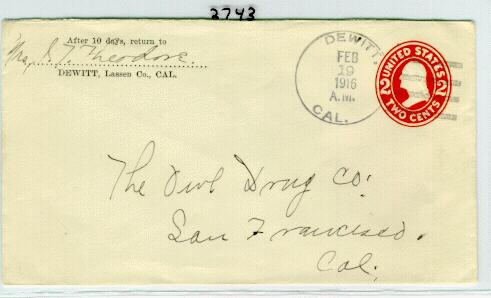 2743
After 10 days, return to
Mrs. S. T. Theodore
DEWITT, Lassen Co., CAL.
DEWITT,
FEB
19
1916
A.M.
CAL.
UNITED STATES
2 2
TWO CENTS
The Owl Drug Co.
San Francisco.
Cal.